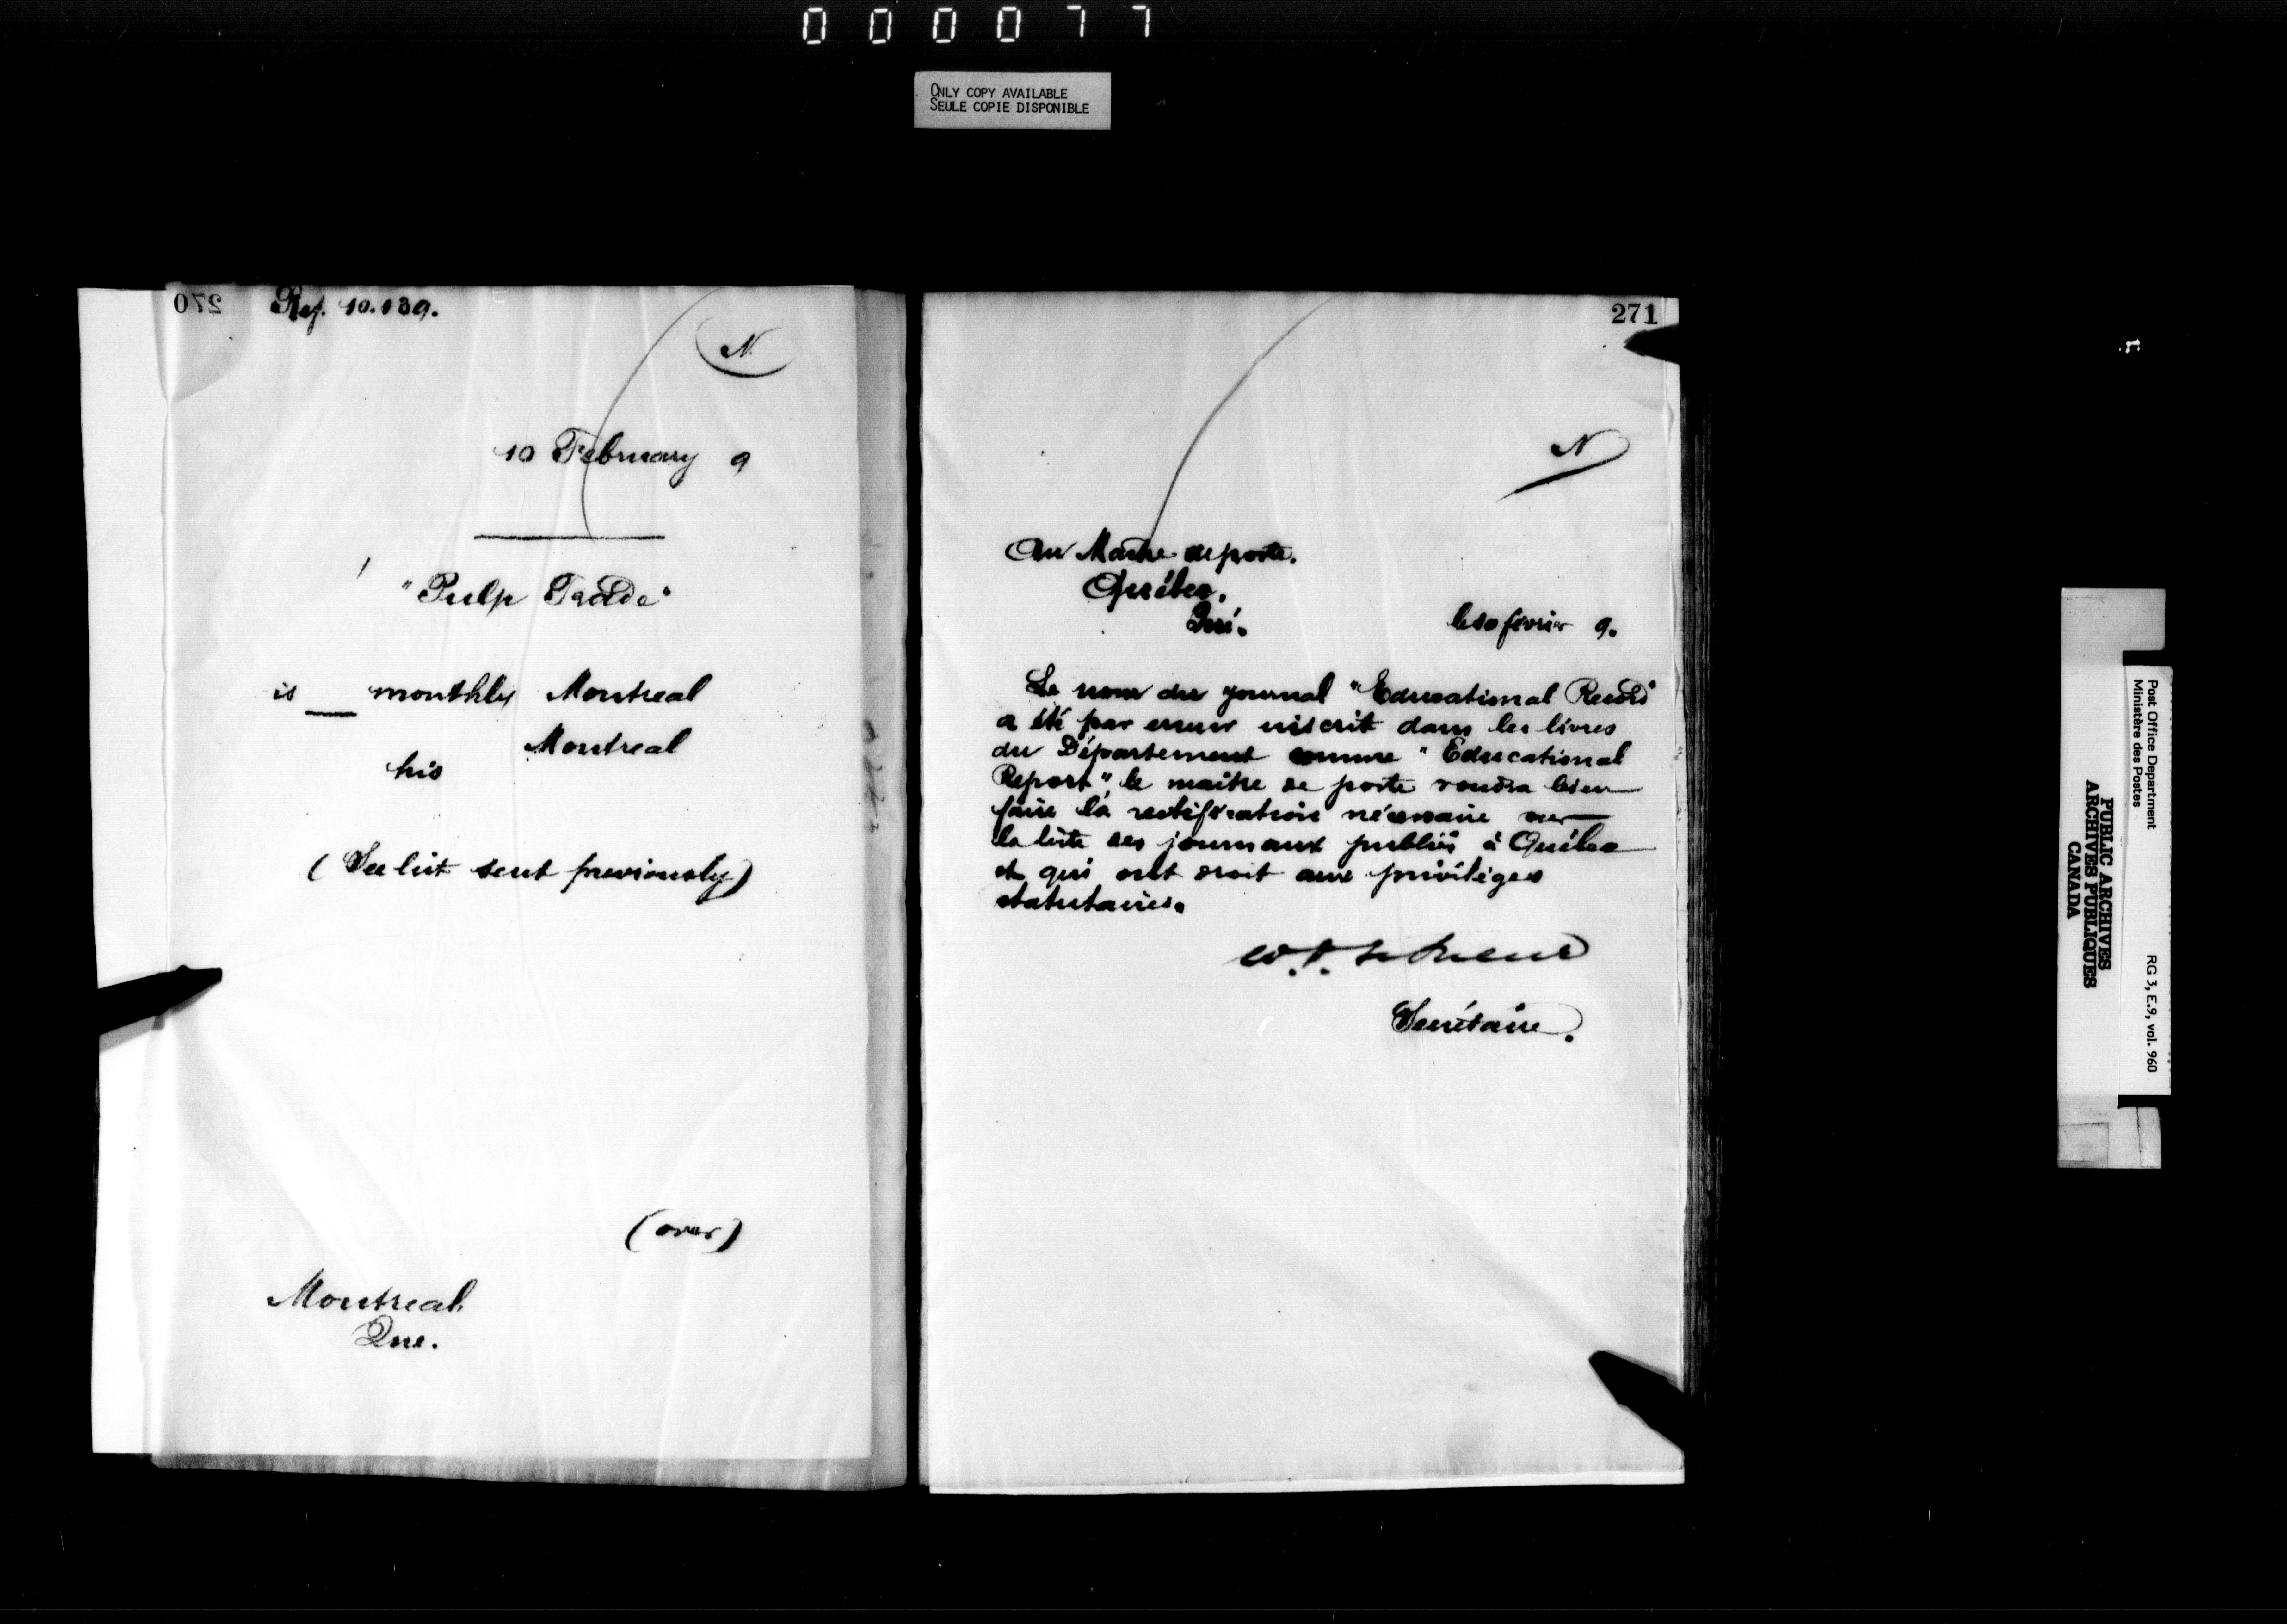 000077
ONLY COPY AVAILABLE
SEULE COPIE DISPONIBLE
270
Ref. 10.139.
N
10 February 9
"Pulp Trade"
is monthly Montreal
Montreal
his
(See list sent previously)
(over)
Montreal
Que.
271
N
Au Maître de poste.
Québec.
Qué.
le 10 février 9.
Le nom du journal "Educational Record"
a été par erreur inscrit dans les livres
du Département comme "Educational
Report", le maître de poste voudra bien
faire la rectification nécessaire sur
la liste des journaux publiés à Québec
et qui ont droit aux privilèges
statutaires.
Secrétaire.
Post Office Department
Ministère des Postes
RG 3, E.9, vol. 960
PUBLIC ARCHIVES
ARCHIVES PUBLIQUES
CANADA